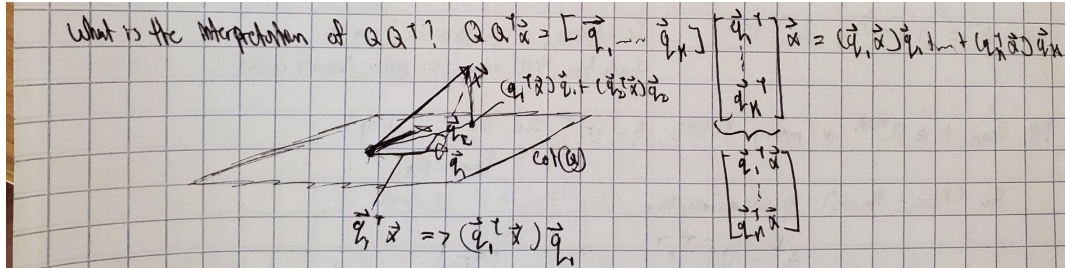 What is the interpretation of QQᵀ? QQᵀx⃗ = [q⃗₁ ... q⃗ₖ] [q⃗₁ᵀ ⋮ q⃗ₖᵀ] x⃗ = (q⃗₁x⃗)q⃗₁ + ... + (qₖᵀx⃗)q⃗ₖ
x⃗
(q₁ᵀx⃗)q⃗₁ + (q⃗₂ᵀx⃗)q⃗₂
q⃗₂
q⃗₁
col(Q)
[q⃗₁ᵀx⃗ ⋮ q⃗ₖᵀx⃗]
q⃗₁ᵀx⃗ => (q⃗₁ᵀx⃗)q⃗₁